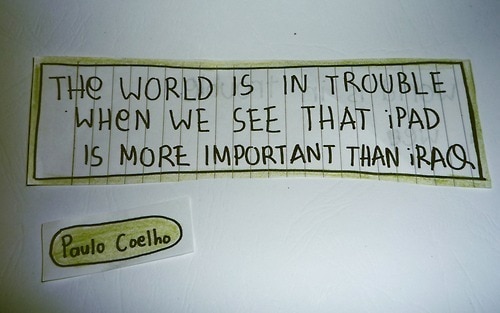 THe WORLD IS IN TROUBLE
WHeN WE SEE THAT iPAD
IS MORE IMPORTANT THAN iRAQ
Paulo Coelho